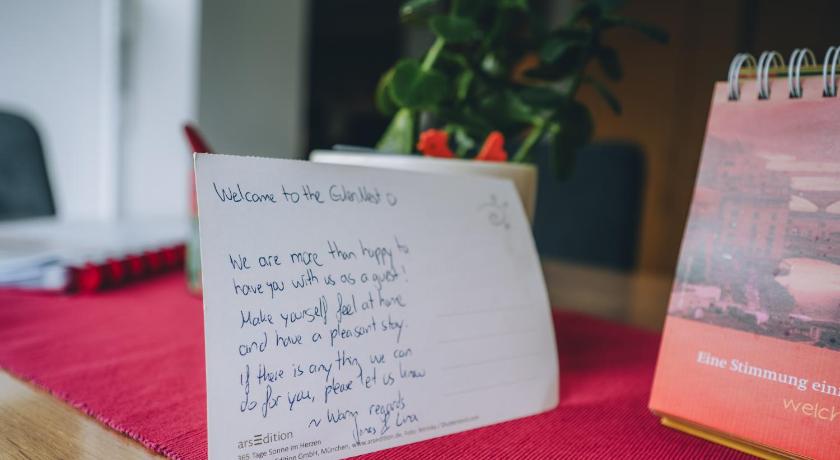 Welcome to the
We are more than happy to
have you with us as a guest!
Make yourself feel at home
and have a pleasant stay.
If there is any thing we can
do for you, please let us know
~ Warm regards
arsEdition
365 Tage Sonne im Herzen
Edition GmbH, München, www.arsedition.de, Foto: / Shutterstock.com
Eine Stimmung
welch